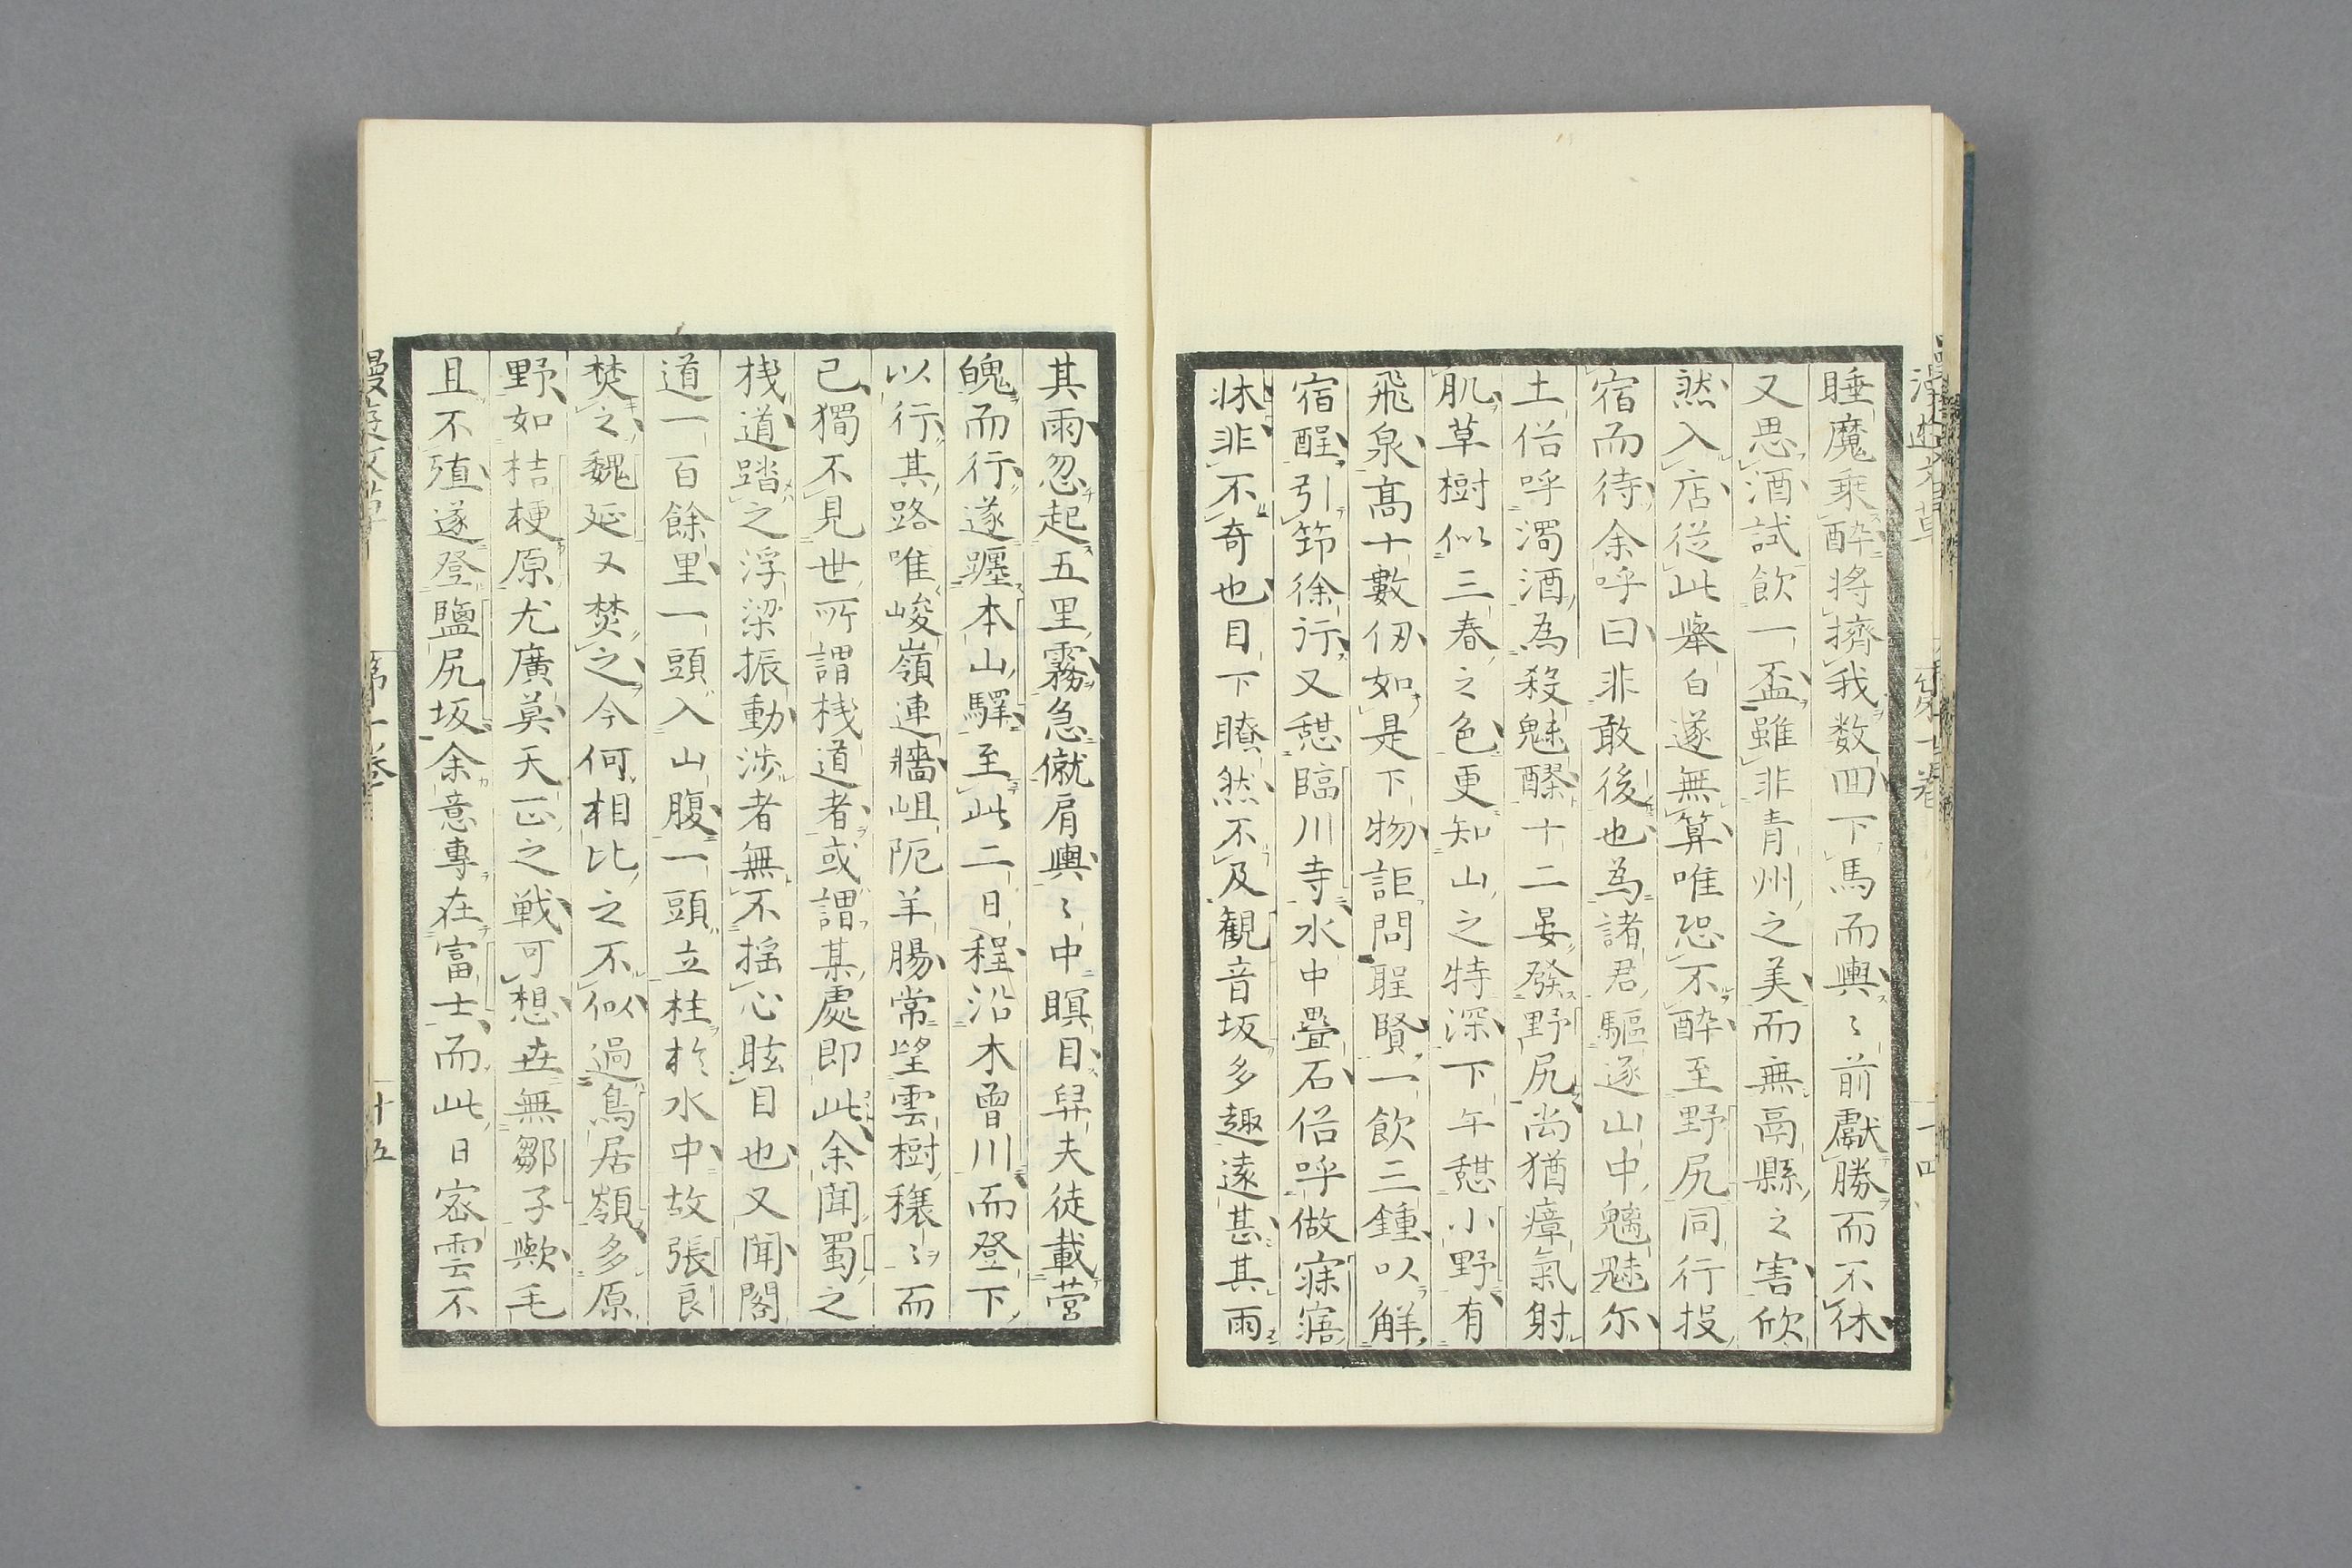 睡魔乘酔将擠我数囬下馬而輿〻前獻勝而不休
又思酒試飲一盃雖非青州之美而無鬲縣之害欣
然入店従此舉白遂無算唯恐不酔至野尻同行投
宿而待余呼曰非敢後也為諸君驅逐山中魑魅尓
土俗呼濁酒為殺魅醪十二晏發野尻尚猶瘴氣射
肌草樹似三春之色更知山之特深下午憇小野有
飛泉髙十數仭如是下物詎問聖賢一飲三鍾以觧
宿酲引笻徐行又憇臨川寺水中疊石俗呼做寐寤
牀非不奇也目下瞭然不及観音坂多趣遠甚其雨
其雨忽起五里霧急僦肩輿〻中瞑目舁夫徒載営
魄而行遂躔本山驛至此二日程沿木曽川而登下
以行其路唯峻嶺連牆岨阨羊腸常望雲樹穣〻而
已獨不見世所謂桟道者或謂某處即此余聞蜀之
桟道踏之浮梁振動渉者無不揺心眩目也又聞閣
道一百餘里一頭入山腹一頭立柱於水中故張良
焚之魏延又焚之今何相比之不似過鳥居嶺多原
野如桔梗原尤廣莫天正之戦可想毎無鄒子歟毛
且不殖遂登鹽尻坂余意專在富士而此日宻雲不
漫遊文草
第一巻
十四
漫遊文草
第一巻
十五